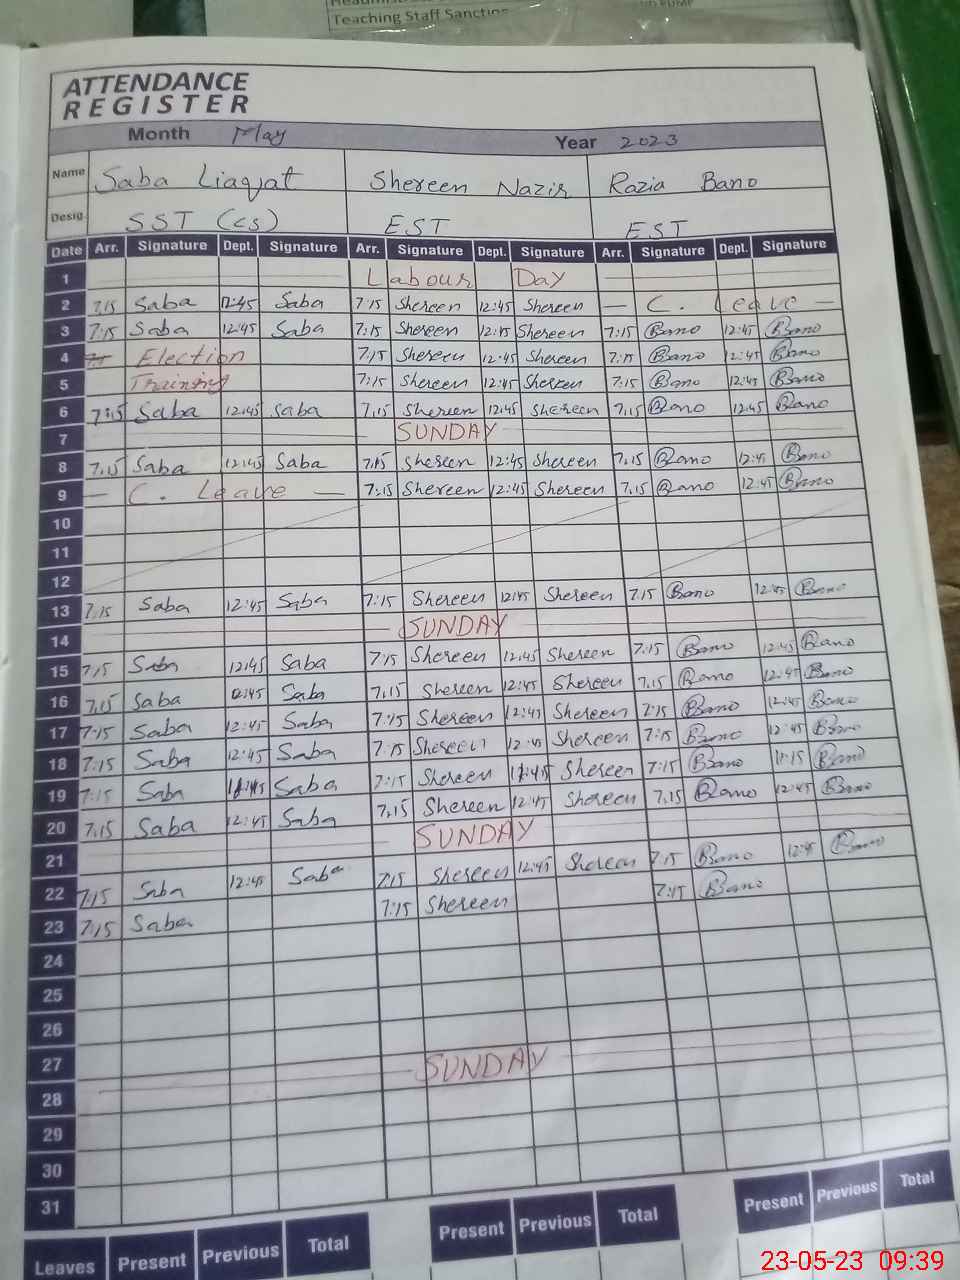 Teaching Staff Sanction
ATTENDANCE
REGISTER
Month May Year 2023
Name Saba Liaqat Shereen Nazir Razia Bano
Desig. SST (cs) EST EST
Date Arr. Signature Dept. Signature Arr. Signature Dept. Signature Arr. Signature Dept. Signature
1 Labour Day
2 7:15 Saba 12:45 Saba 7:15 Shereen 12:45 Shereen — C. Leave —
3 7:15 Saba 12:45 Saba 7:15 Shereen 12:45 Shereen 7:15 Bano 12:45 Bano
4 Election 7:15 Shereen 12:45 Shereen 7:15 Bano 12:45 Bano
5 Training 7:15 Shereen 12:45 Shereen 7:15 Bano 12:45 Bano
6 7:15 Saba 12:45 Saba 7:15 Shereen 12:45 Shereen 7:15 Bano 12:45 Bano
7 SUNDAY
8 7:15 Saba 12:45 Saba 7:15 Shereen 12:45 Shereen 7:15 Bano 12:45 Bano
9 — C. Leave — 7:15 Shereen 12:45 Shereen 7:15 Bano 12:45 Bano
10
11
12
13 7:15 Saba 12:45 Saba 7:15 Shereen 12:45 Shereen 7:15 Bano 12:45 Bano
14 SUNDAY
15 7:15 Saba 12:45 Saba 7:15 Shereen 12:45 Shereen 7:15 Bano 12:45 Bano
16 7:15 Saba 12:45 Saba 7:15 Shereen 12:45 Shereen 7:15 Bano 12:45 Bano
17 7:15 Saba 12:45 Saba 7:15 Shereen 12:45 Shereen 7:15 Bano 12:45 Bano
18 7:15 Saba 12:45 Saba 7:15 Shereen 12:45 Shereen 7:15 Bano 12:45 Bano
19 7:15 Saba 11:45 Saba 7:15 Shereen 11:45 Shereen 7:15 Bano 11:15 Bano
20 7:15 Saba 12:45 Saba 7:15 Shereen 12:45 Shereen 7:15 Bano 12:45 Bano
21 SUNDAY
22 7:15 Saba 12:45 Saba 7:15 Shereen 12:45 Shereen 7:15 Bano 12:45 Bano
23 7:15 Saba 7:15 Shereen 7:15 Bano
24
25
26
27
28 SUNDAY
29
30
31
Leaves Present Previous Total Present Previous Total Present Previous Total
23-05-23 09:39